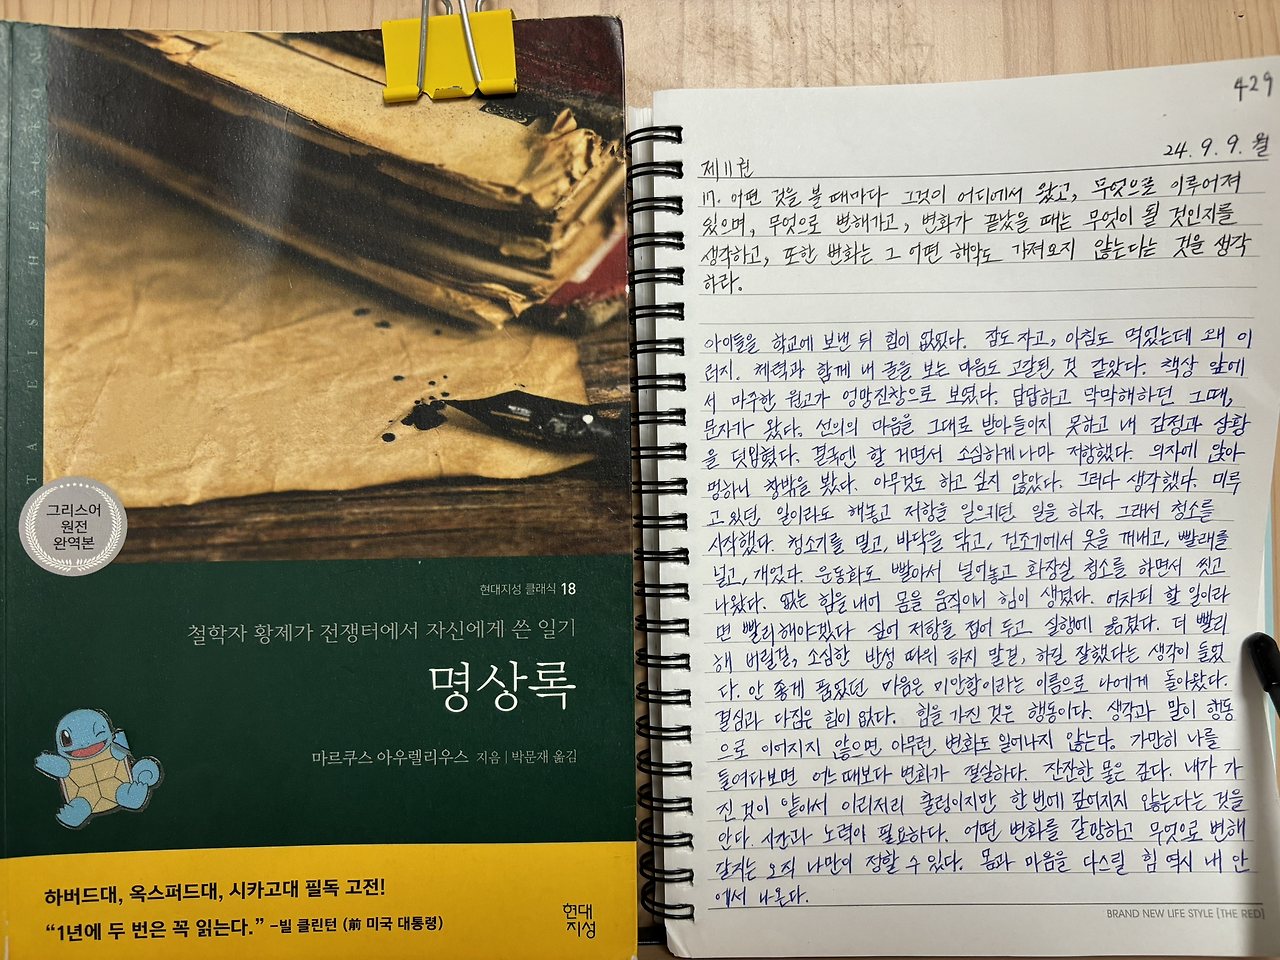 TA EIS HEAUTON
그리스어
원전
완역본
현대지성 클래식 18
철학자 황제가 전쟁터에서 자신에게 쓴 일기
명상록
마르쿠스 아우렐리우스 지음 | 박문재 옮김
하버드대, 옥스퍼드대, 시카고대 필독 고전!
“1년에 두 번은 꼭 읽는다.” –빌 클린턴 (前 미국 대통령)
현대
지성
429
24. 9. 9. 월
제11권
17. 어떤 것을 볼 때마다 그것이 어디에서 왔고, 무엇으로 이루어져
있으며, 무엇으로 변해가고, 변화가 끝났을 때는 무엇이 될 것인지를
생각하고, 또한 변화는 그 어떤 해악도 가져오지 않는다는 것을 생각
하라.
아이들을 학교에 보낸 뒤 힘이 없었다. 잠도 자고, 아침도 먹었는데 왜 이
러지. 체력과 함께 내 글을 보는 마음도 고갈된 것 같았다. 책상 앞에
서 마주한 원고가 엉망진창으로 보였다. 답답하고 막막해하던 그때,
문자가 왔다. 선의의 마음을 그대로 받아들이지 못하고 내 감정과 상황
을 덧입혔다. 결국엔 할 거면서 소심하게나마 저항했다. 의자에 앉아
멍하니 창밖을 봤다. 아무것도 하고 싶지 않았다. 그러다 생각했다. 미루
고 있던 일이라도 해놓고 저항을 일으키던 일을 하자. 그래서 청소를
시작했다. 청소기를 밀고, 바닥을 닦고, 건조기에서 옷을 꺼내고, 빨래를
널고, 개었다. 운동화도 빨아서 널어놓고 화장실 청소를 하면서 씻고
나왔다. 없는 힘을 내어 몸을 움직이니 힘이 생겼다. 어차피 할 일이라
면 빨리 해야겠다 싶어 저항을 접어 두고 실행에 옮겼다. 더 빨리
해 버릴걸, 소심한 반성 따위 하지 말걸, 하길 잘했다는 생각이 들었
다. 안 좋게 품었던 마음은 미안함이라는 이름으로 나에게 돌아왔다.
결심과 다짐은 힘이 없다. 힘을 가진 것은 행동이다. 생각과 말이 행동
으로 이어지지 않으면 아무런 변화도 일어나지 않는다. 가만히 나를
들여다보면 어느 때보다 변화가 절실하다. 잔잔한 물은 깊다. 내가 가
진 것이 얕아서 이리저리 출렁이지만 한 번에 깊어지지 않는다는 것을
안다. 시간과 노력이 필요하다. 어떤 변화를 갈망하고 무엇으로 변해
갈지는 오직 나만이 정할 수 있다. 몸과 마음을 다스릴 힘 역시 내 안
에서 나온다.
BRAND NEW LIFE STYLE [THE RED]